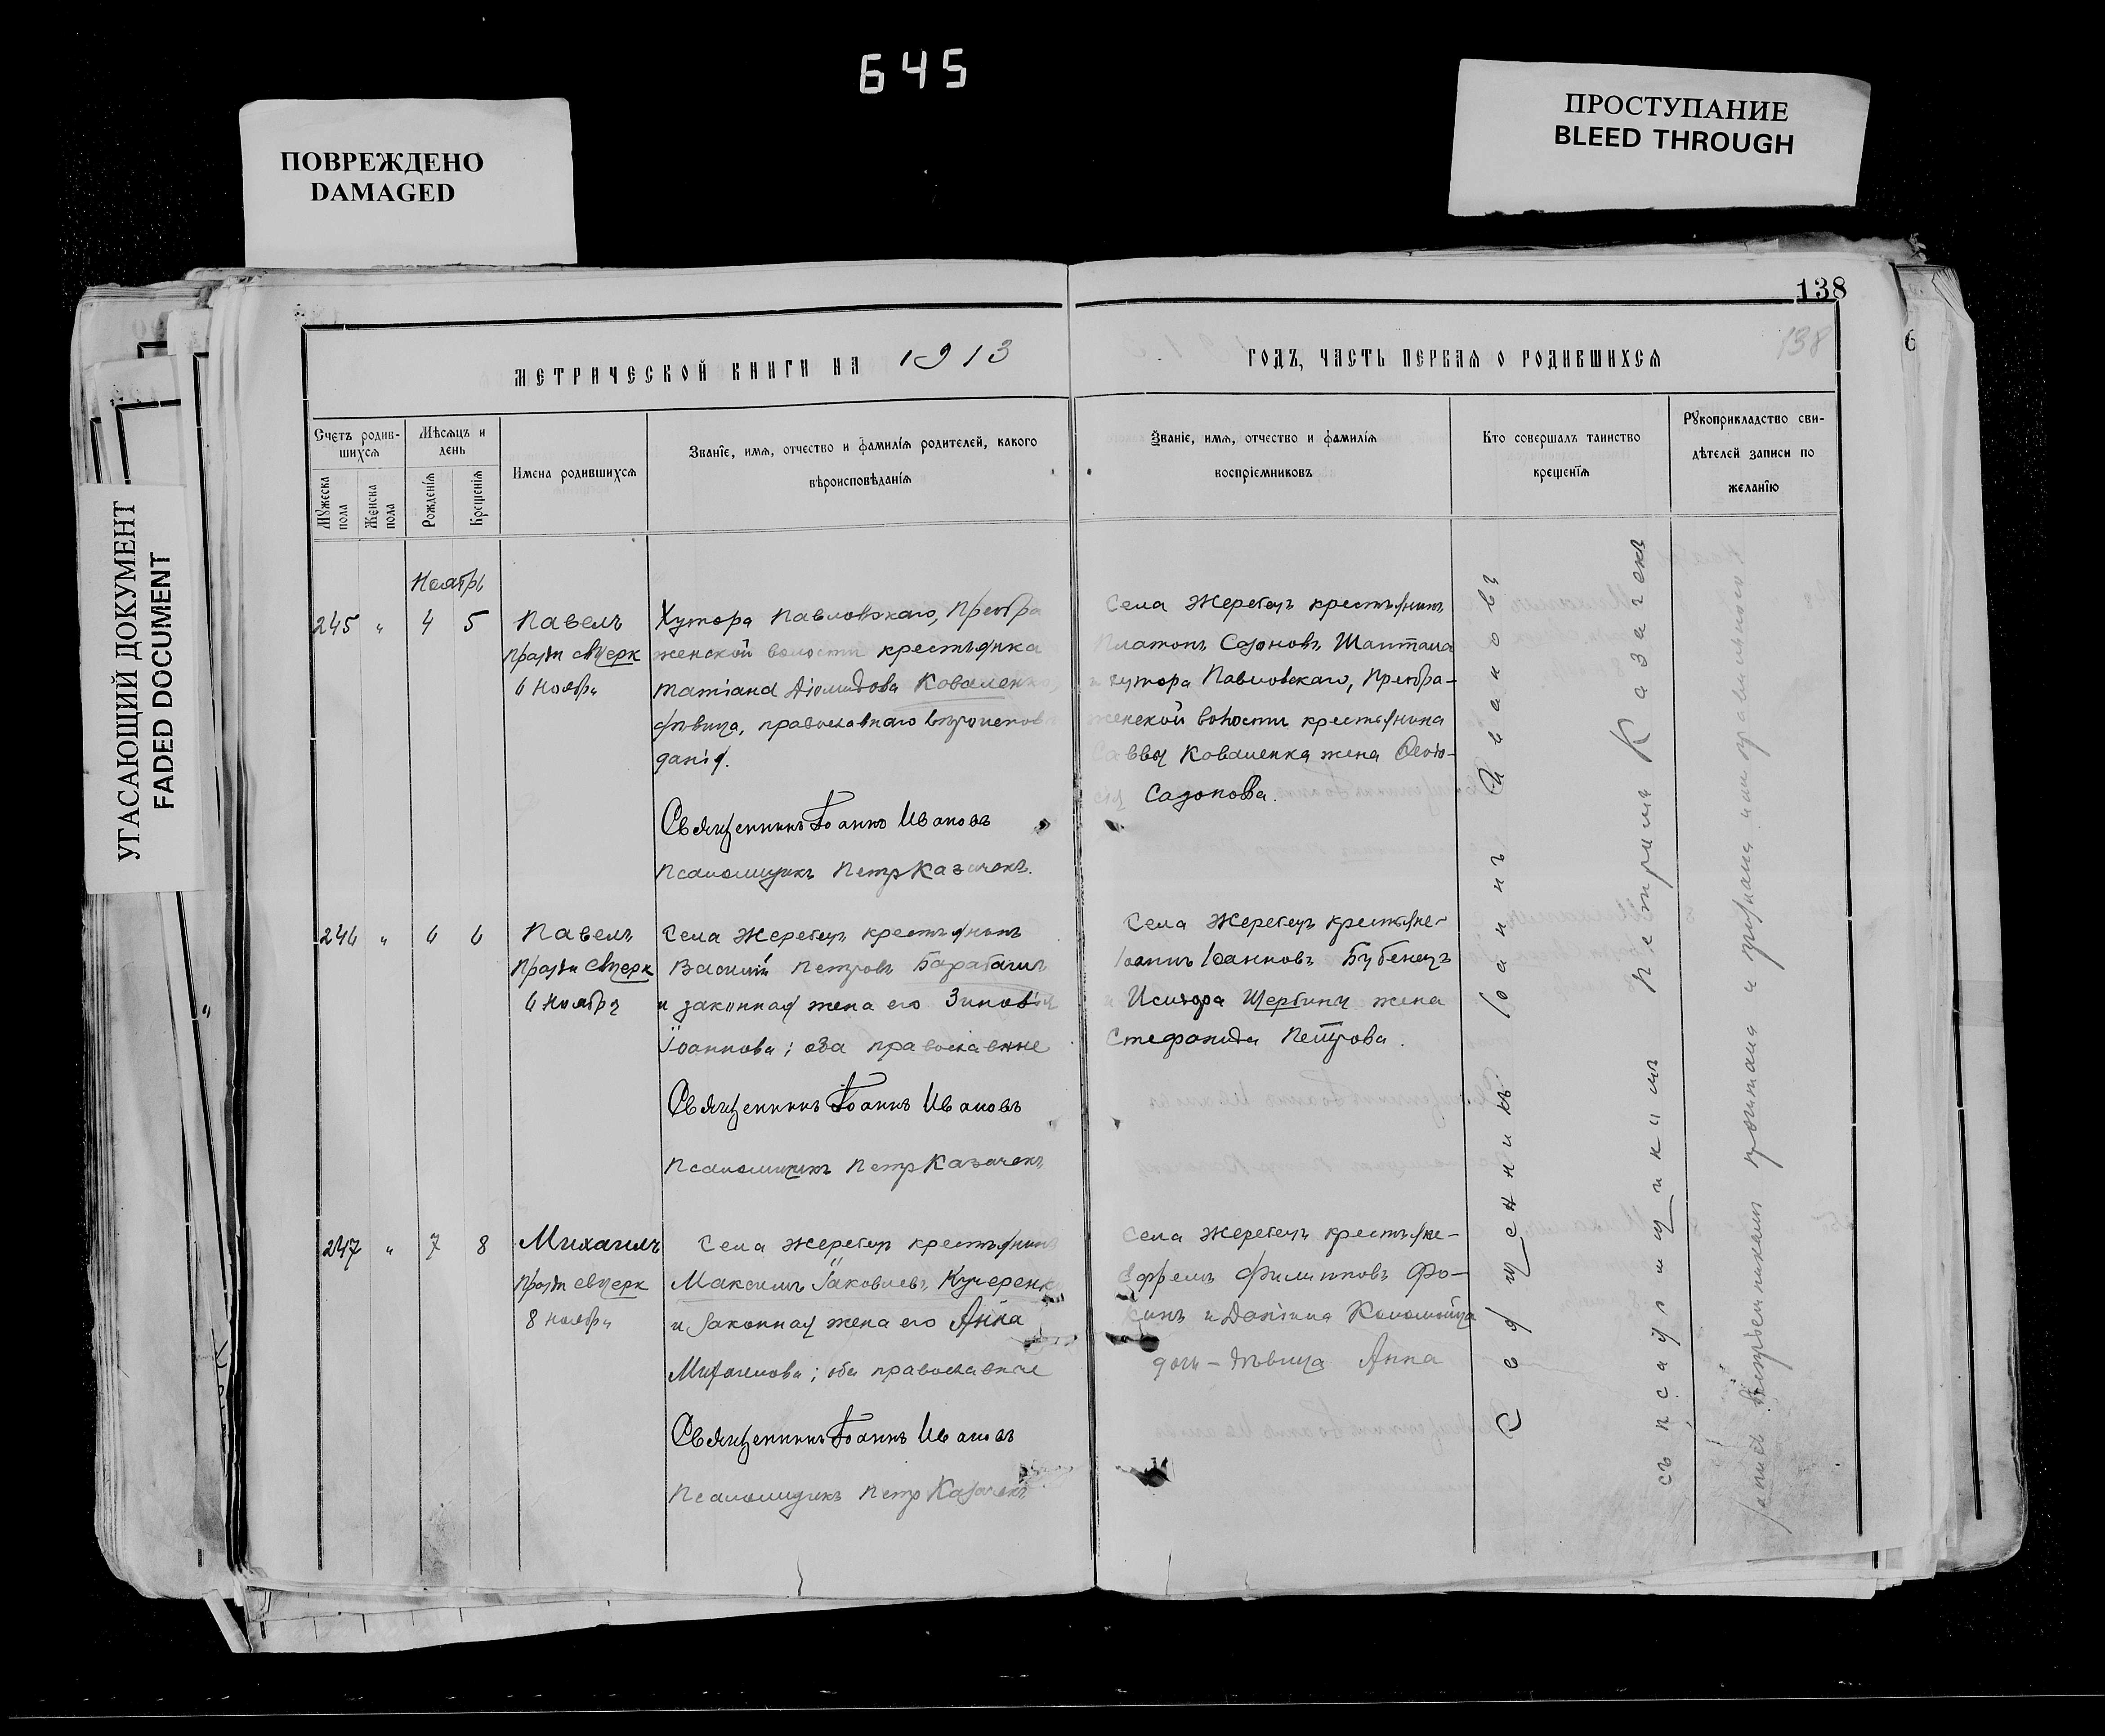 645
ПОВРЕЖДЕНО
DAMAGED
ПРОСТУПАНИЕ
BLEED THROUGH
УГАСАЮЩИЙ ДОКУМЕНТ
FADED DOCUMENT
138
138
6
МЕТРИЧЕСКОЙ КНИГИ НА 1913
ГОДЪ, ЧАСТЬ ПЕРВАЯ О РОДИВШИХСЯ
Счетъ родив-
шихся
Мѣсяцъ и
день
Мужеска
пола
Женска
пола
Рожденія
Крещенія
Имена родившихся
Званіе, имя, отчество и фамилія родителей, какого
вѣроисповѣданія
Званіе, имя, отчество и фамилія
воспріемниковъ
Кто совершалъ таинство
крещенія
Рукоприкладство сви-
дѣтелей записи по
желанію
Ноябрь
245 " 4 5 Павелъ
6 Ноября
Хутора Павловскаго, Преобра
женской волости крестьянка
Татіана Діомидова Коваленко,
дѣвица, православнаго вѣроиспов
данія.
Священникъ Іоаннъ Ивановъ
Псаломщикъ Петр Казачекъ.
Села Жеребецъ крестьянинъ
Платонъ Созоновъ
и хутора Павловскаго, Преобра-
женской волости крестьянина
Саввы Коваленка жена
Созонова.
246 " 6 6 Павелъ
6 Ноября
Села Жеребецъ крестьянинъ
Василій Петровъ Барабашъ
и законная жена его Зиновія
Іоаннова; оба православные
Священникъ Іоаннъ Ивановъ
Псаломщикъ Петр Казачекъ
Села Жеребецъ крестьяне-
Іоаннъ Іоанновъ Бубенецъ
Исидора Щербины жена
Стефанида Петрова.
247 " 7 8 Михаилъ
8 Ноября
Села Жеребецъ крестьянинъ
Максимъ Іаковлевъ Кучеренк
и законная жена его Анна
Михаилова; оба православные
Священникъ Іоаннъ Ивановъ
Псаломщикъ Петр Казачекъ
Села Жеребецъ крестьяне-
Ефремъ Филипповъ Фо-
кинъ и Даніила Коломойца
дочь-дѣвица Анна
Священникъ Іоаннъ Ивановъ
съ псаломщикомъ Петромъ Казачекъ